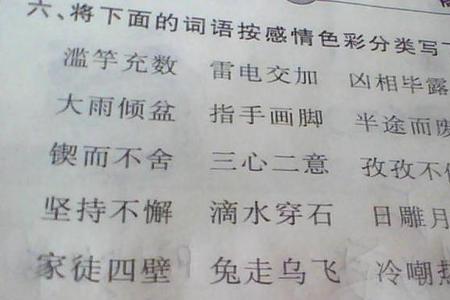 六、将下面的词语按感情色彩分类写
滥竽充数 雷电交加 凶相毕露
大雨倾盆 指手画脚 半途而废
锲而不舍 三心二意 孜孜不
坚持不懈 滴水穿石 日雕月
家徒四壁 兔走乌飞 冷嘲